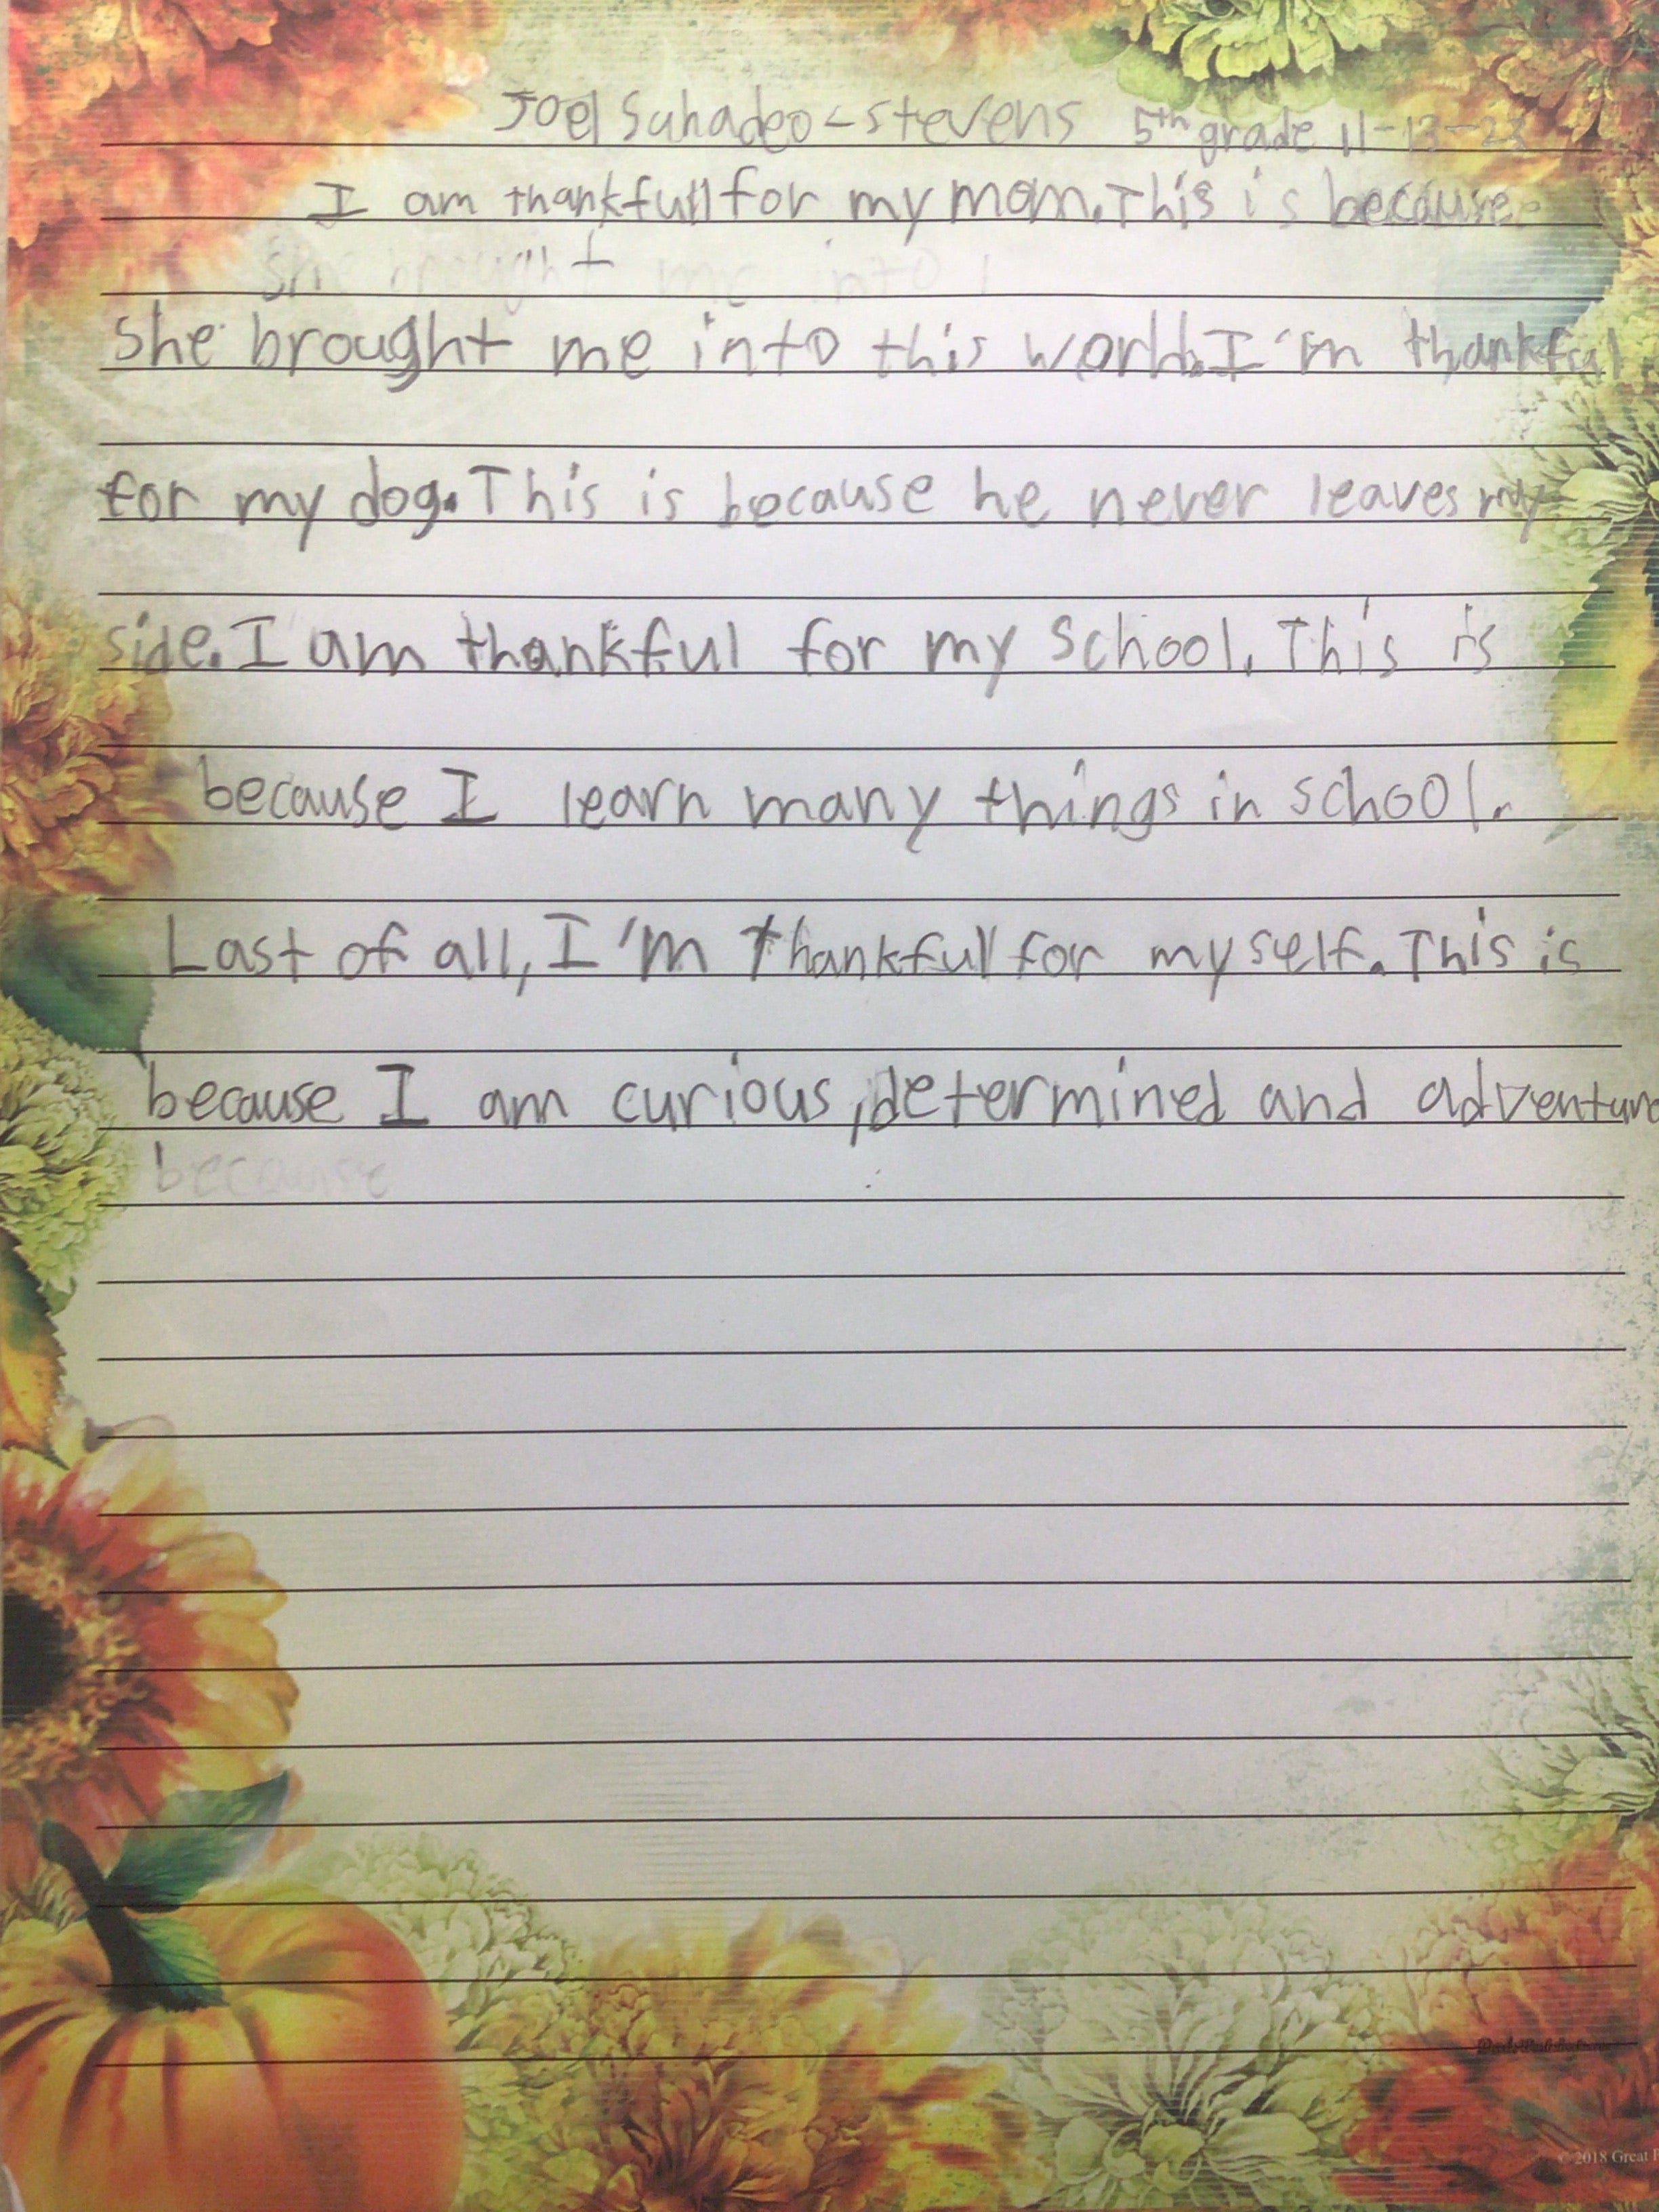 Joel Sahadeo-stevens 5th grade 11-13-23
I am thankfull for my mom. This is because
she brought me into
she brought me into this world. I'm thankful
for my dog. This is because he never leaves my
side. I am thankful for my school. This is
because I learn many things in school.
Last of all, I'm thankfull for myself. This is
because I am curious, determined and adventure
because
© 2018 Great